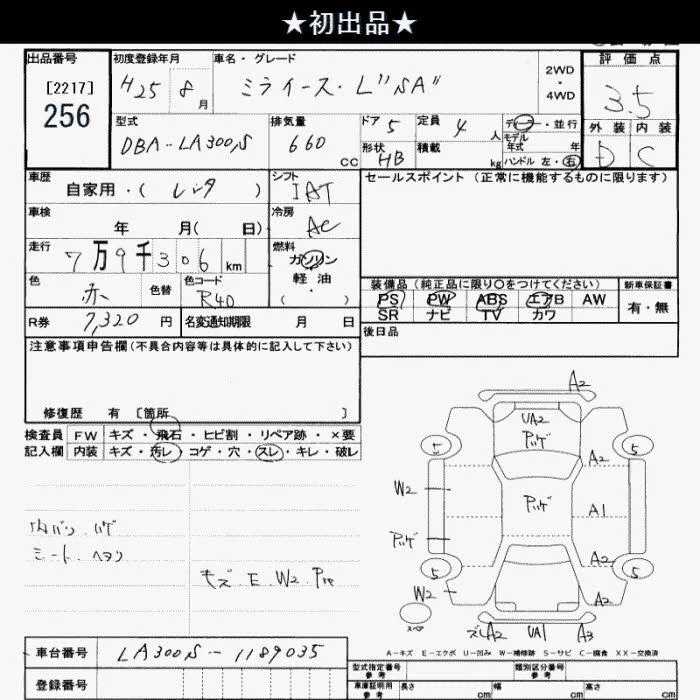 ★初出品★
出品番号
[2217]
256
初度登録年月
H25 8月
車名・グレード
ミライース・L"SA"
2WD
・
4WD
評価点
3.5
外装 内装
D C
型式
DBA-LA300S
排気量
660 cc
ドア 5
定員 4 人
形状 HB
積載 kg
ディーラー・並行
モデル年式 年
ハンドル 左・右
車歴
自家用・( レンタ )
シフト
IAT
セールスポイント (正常に機能するものに限ります)
車検
年 月( 日)
冷房
AC
走行
7万9千306km
燃料
ガソリン
軽油
( ・ )
色
赤
色替
色コード
R40
装備品 (純正品に限り〇をつけてください)
新車保証書
PS PW ABS エアB AW
SR ナビ TV カワ
有・無
R券 7,320 円
名変通知期限 月 日
後日品
注意事項申告欄 (不具合内容等は具体的に記入して下さい)
修復歴 有 〔箇所 〕
検査員
記入欄
FW キズ・飛石・ヒビ割・リペア跡・×要
内装 キズ・汚レ・コゲ・穴・スレ・キレ・破レ
内バリ ハゲ
シート ヘタリ
キズ E W2
A2
UA2
5
5
A2
W2
A1
A2
5
5
W2
A2
スペア
A2 UA1 A3
A-キズ E-エクボ U-凹み W-補修跡 S-サビ C-腐食 XX-交換済
車台番号
LA300S-1189035
登録番号
型式指定番号
参考
類別区分番号
参考
車庫証明用
参考
長さ cm
幅 cm
高さ cm